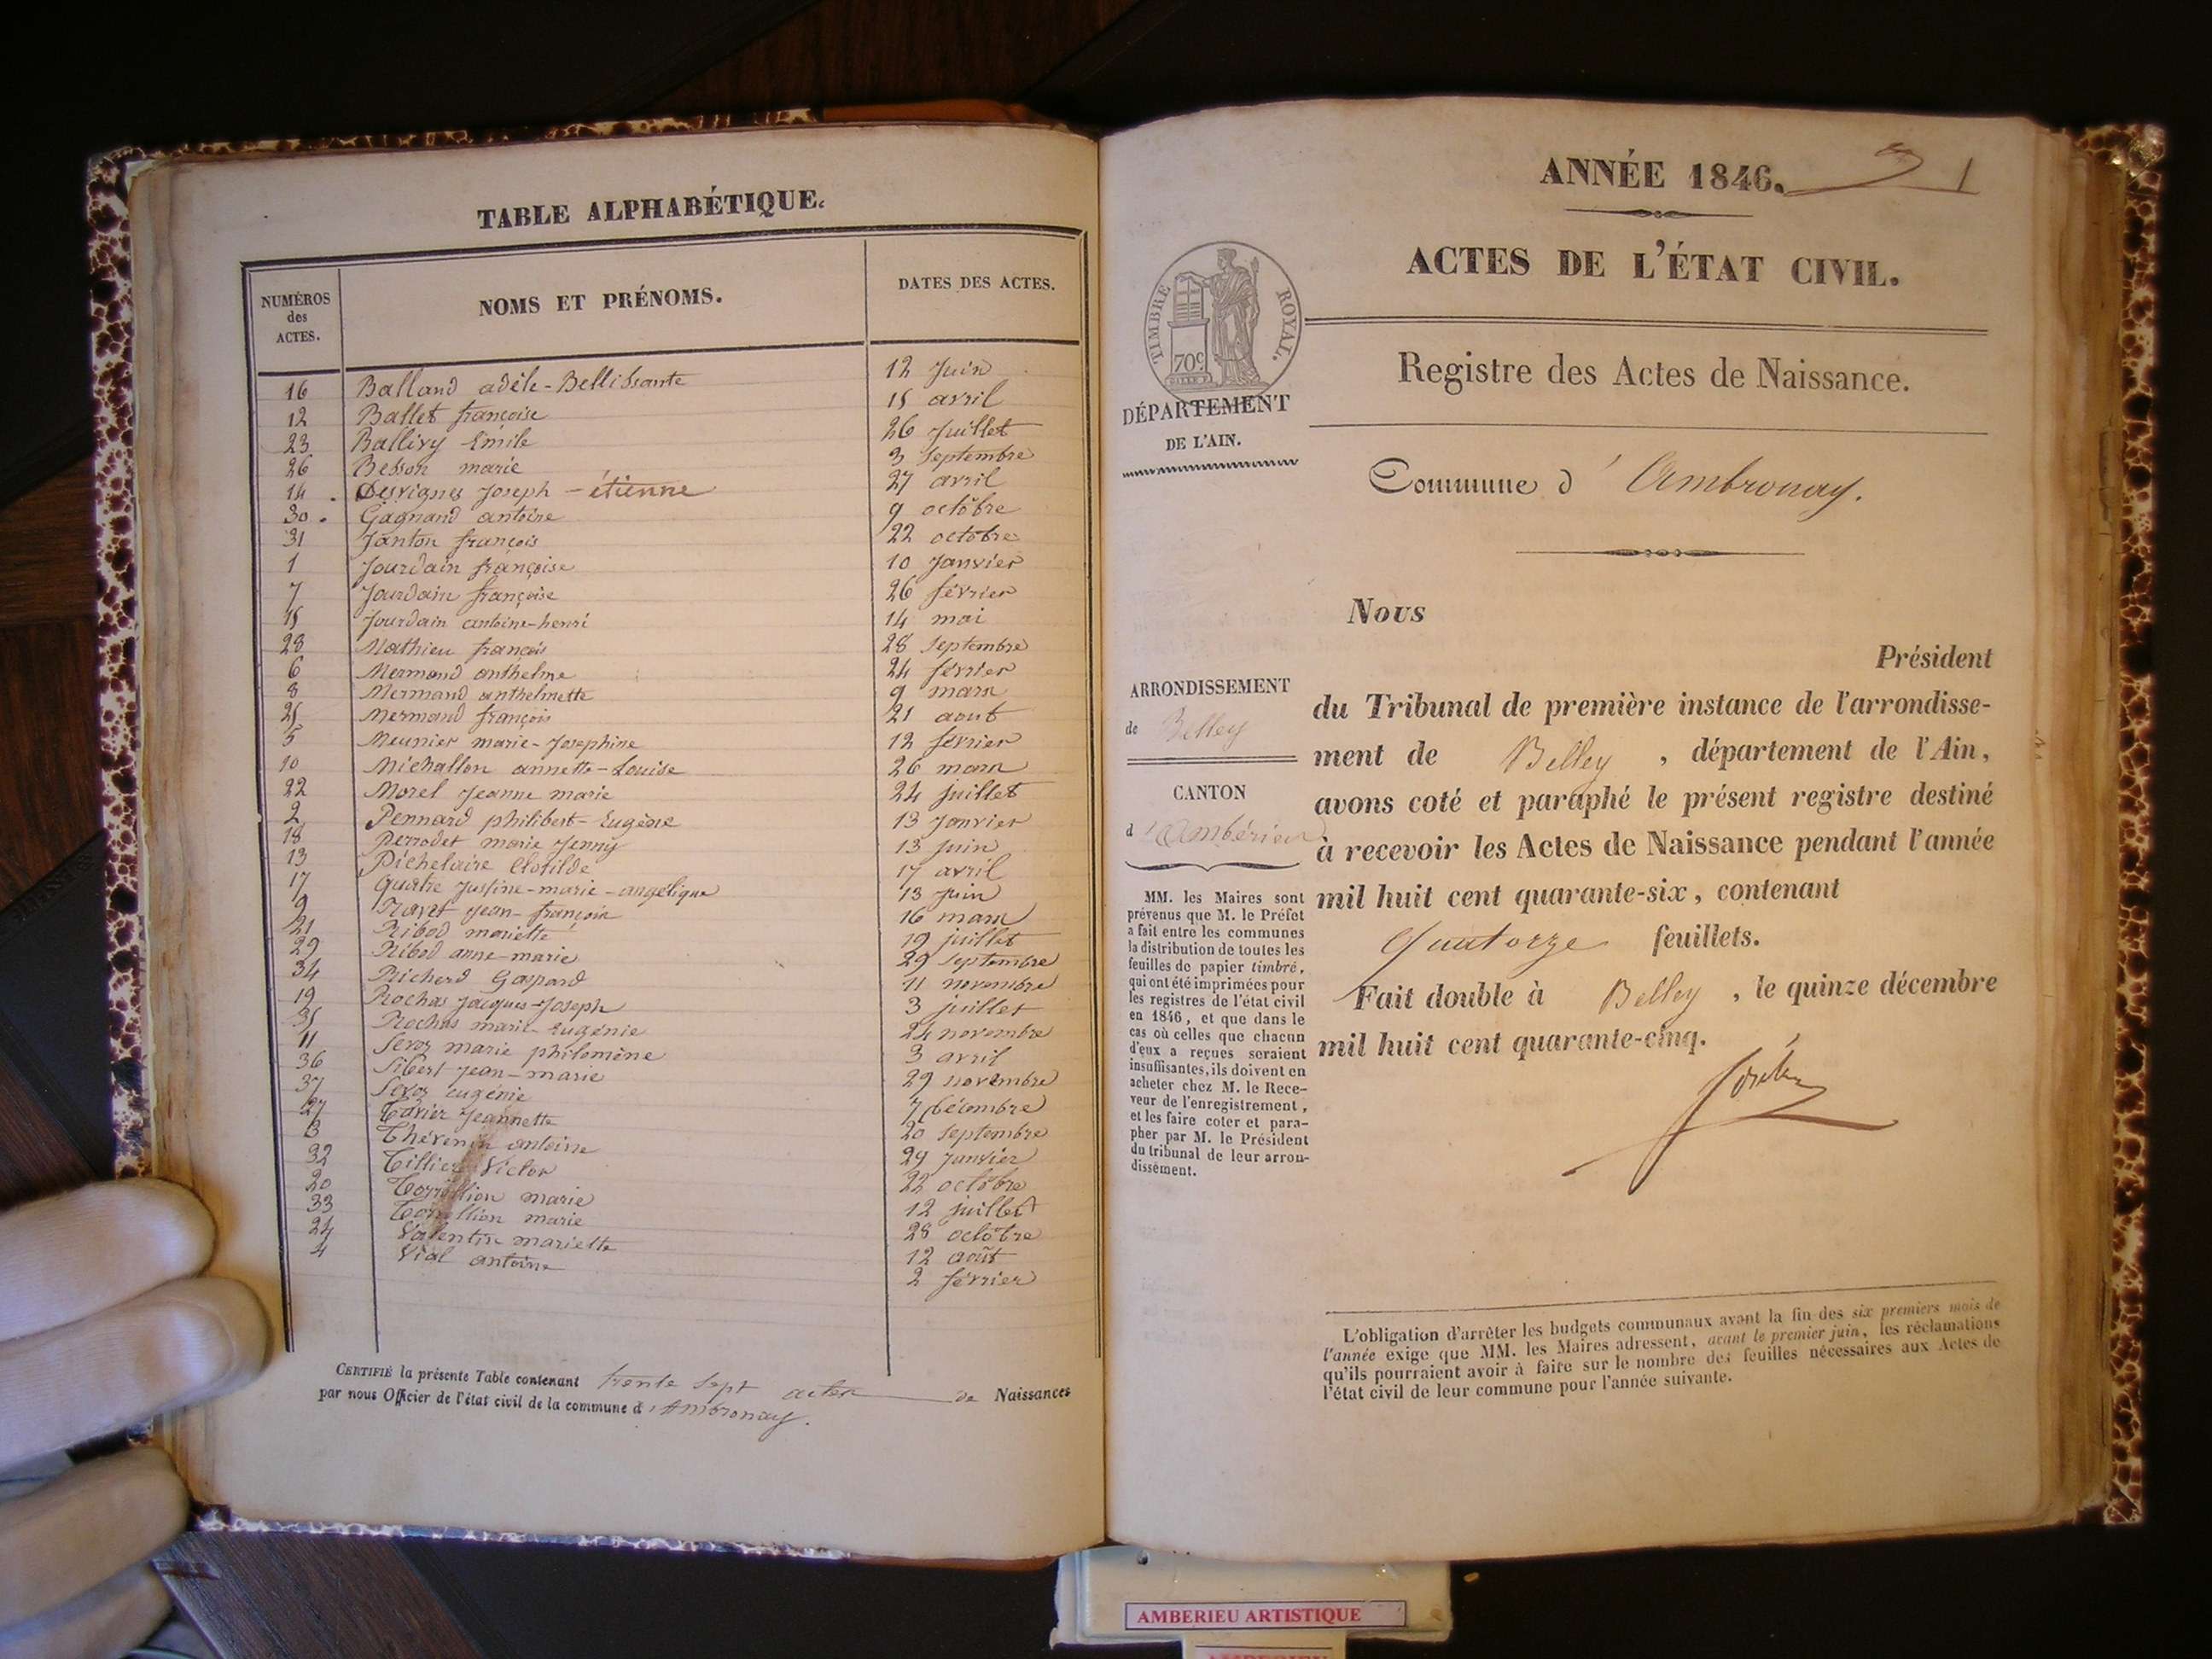 TABLE ALPHABÉTIQUE.
NUMÉROS des ACTES. NOMS ET PRÉNOMS. DATES DES ACTES.
16 Balland adèle-Bellissante 12 Juin
12 Ballet françoise 15 avril
23 Ballivy Emile 26 Juillet
26 Besson marie 3 Septembre
14 Desvignes Joseph - étienne 27 avril
30 Gagnand antoine 9 octobre
31 Janton françois 22 octobre
1 Jourdain françoise 10 Janvier
7 Jourdain françoise 26 février
15 Jourdain antoine-henri 14 mai
28 Mathieu françois 28 Septembre
6 Mermand anthelme 24 février
8 Mermand anthelmette 9 mars
25 Mermand françois 21 aout
5 Meunier marie-Josephine 12 février
10 Michallon annette-Louise 26 mars
22 Morel Jeanne marie 24 Juillet
2 Pennard philibert-Eugène 13 Janvier
18 Perrodet marie Jenny 13 Juin
13 Pichelaire Clotilde 17 avril
17 Quatre Justine-marie-angélique 13 Juin
9 Ravet Jean-françois 16 mars
21 Ribod mariette 19 juillet
29 Ribod anne-marie 29 Septembre
34 Richerd Gaspard 11 novembre
19 Rochas Jacques-Joseph 3 juillet
35 Rochas marie-Eugénie 24 novembre
11 Servoz marie philomène 3 avril
36 Sibert Jean-marie 29 novembre
37 Servoz eugénie 7 décembre
27 Tavier Jeannette 20 Septembre
3 Thévenin antoine 29 Janvier
32 Tillier Victor 22 octobre
20 Torrillion marie 12 juillet
33 Torrillion marie 28 octobre
24 Valentin mariette 12 août
4 Vial antoine 2 février
CERTIFIÉ la présente Table contenant trente sept actes de Naissances
par nous Officier de l'état civil de la commune d'Ambronay.
ANNÉE 1846.
1
ACTES DE L'ÉTAT CIVIL.
TIMBRE ROYAL.
70c
Registre des Actes de Naissance.
DÉPARTEMENT
DE L'AIN.
Commune d'Ambronay.
Nous
Président
du Tribunal de première instance de l'arrondisse-
ment de Belley, département de l'Ain,
avons coté et paraphé le présent registre destiné
à recevoir les Actes de Naissance pendant l'année
mil huit cent quarante-six, contenant
Quatorze feuillets.
Fait double à Belley, le quinze décembre
mil huit cent quarante-cinq.
ARRONDISSEMENT
de Belley
CANTON
d'Ambérieu
MM. les Maires sont
prévenus que M. le Préfet
a fait entre les communes
la distribution de toutes les
feuilles de papier timbré,
qui ont été imprimées pour
les registres de l'état civil
en 1846, et que dans le
cas où celles que chacun
d'eux a reçues seraient
insuffisantes, ils doivent en
acheter chez M. le Rece-
veur de l'enregistrement,
et les faire coter et para-
pher par M. le Président
du tribunal de leur arron-
dissement.
L'obligation d'arrêter les budgets communaux avant la fin des six premiers mois de
l'année exige que MM. les Maires adressent, avant le premier juin, les réclamations
qu'ils pourraient avoir à faire sur le nombre des feuilles nécessaires aux Actes de
l'état civil de leur commune pour l'année suivante.
AMBERIEU ARTISTIQUE
AMBERIEU